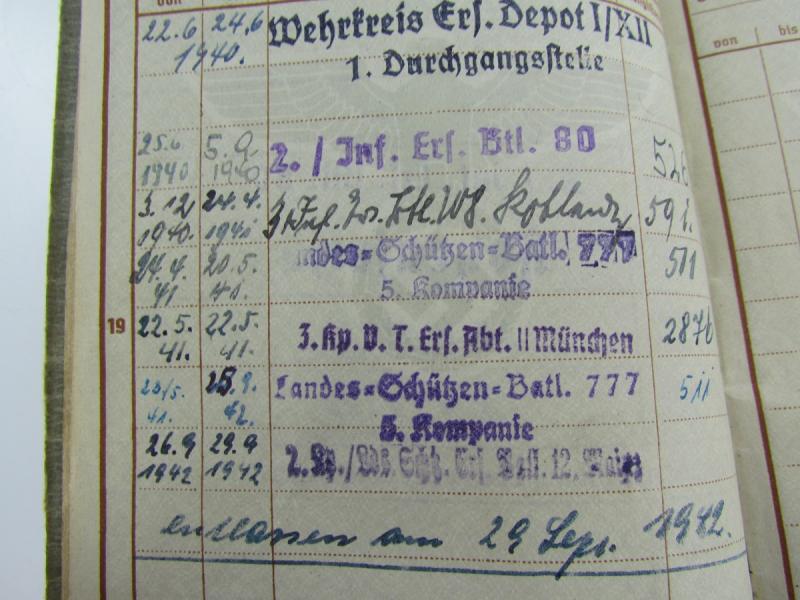 von
von bis
22.6 24.6 Wehrkreis Ers. Depot I/XII
1940. 1. Durchgangsstelle
25.6 5.9 2. / Inf. Ers. Btl. 80
1940 1940
3.12 24.4. 591.
1940. 1941
24.4. 20.5. Landes=Schützen=Batl. 777 511
41 41. 5. Kompanie
19 22.5. 22.5. 3. Kp. V. T. Ers. Abt. II München 287b
41. 41.
Landes=Schützen=Batl. 777 511
41. 42. 5. Kompanie
26.9 29.9 2. Kp./ Ers. Batl. 12, Mainz
1942 1942
entlassen am 29 Sept. 1942.